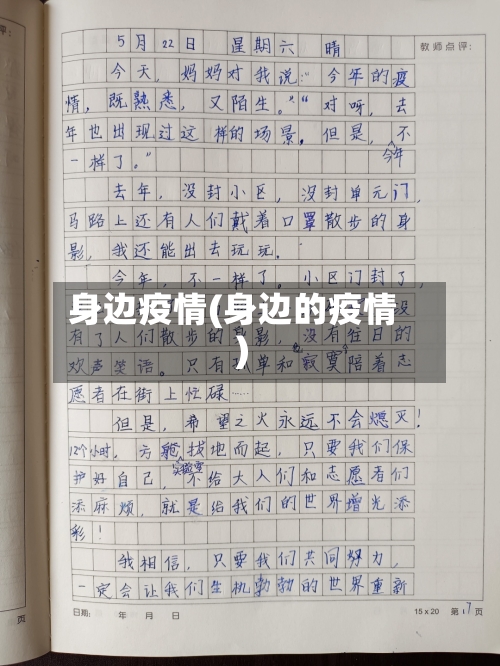 5月22日 星期六 晴
教师点评:
今天，妈妈对我说:"今年的疫
情，既熟悉，又陌生。""对呀，去
年也出现过这样的场景。但是，今年不
一样了。"
去年，没封小区，没封单元门，
马路上还有人们戴着口罩散步的身
影，我还能出去玩玩.
今年，不一样了。小区门封了，
身边疫情(身边的疫情
)
没
有了人们散步的身影，没有往日的
欢声笑语。只有孤单和寂寞陪着志
愿者在街上忙碌……
但是，希望之火永远不会熄灭！
12个小时，方舱实验室拔地而起，只要我们保
护好自己，不给大人们和志愿者们
添麻烦，就是给我们的世界增光添
彩！
我相信，只要我们共同努力，
一定会让我们生机勃勃的世界重新
日期: 年 月 日
15x20 第17页
页